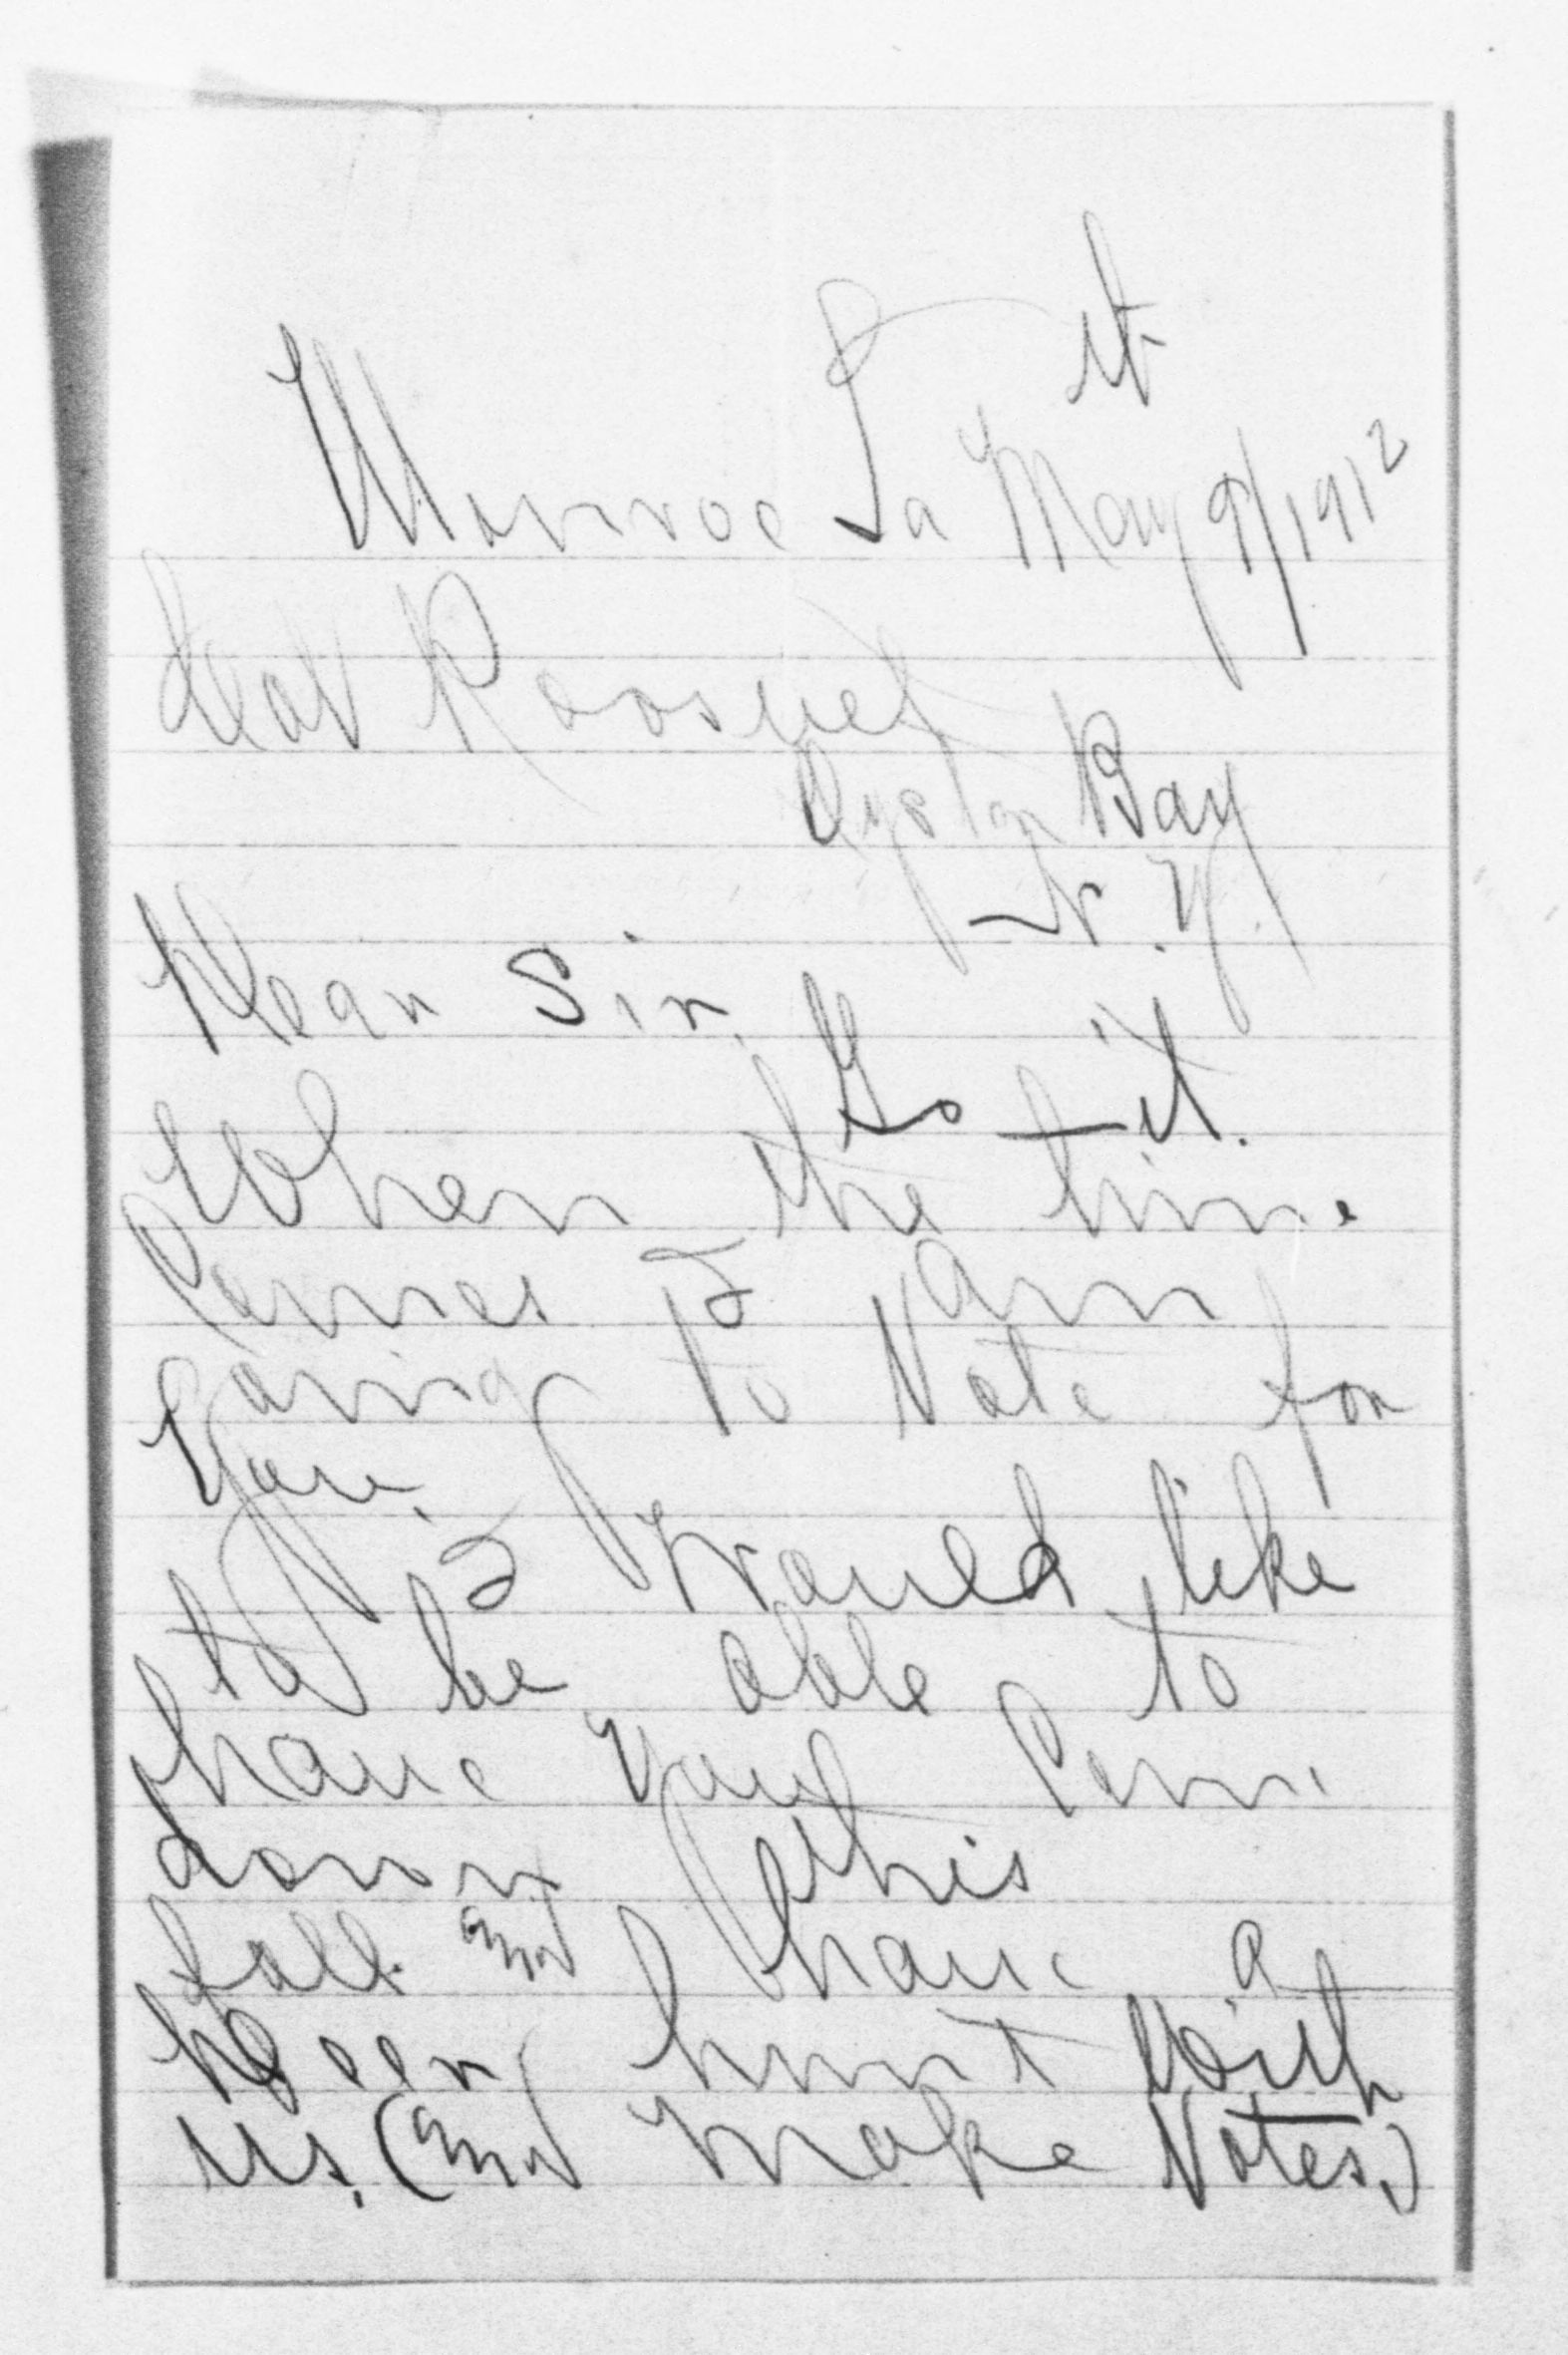 st
Monroe La May 9/1912
Col Roosvet
Oyster Bay
N.Y.
Dear Sir.
Go it.
When the time
Comes I am
going to Vote for
You.
I Would like
to be able to
have You Come
down this
fall and have a
Deer hunt With
us. (and make Votes.)